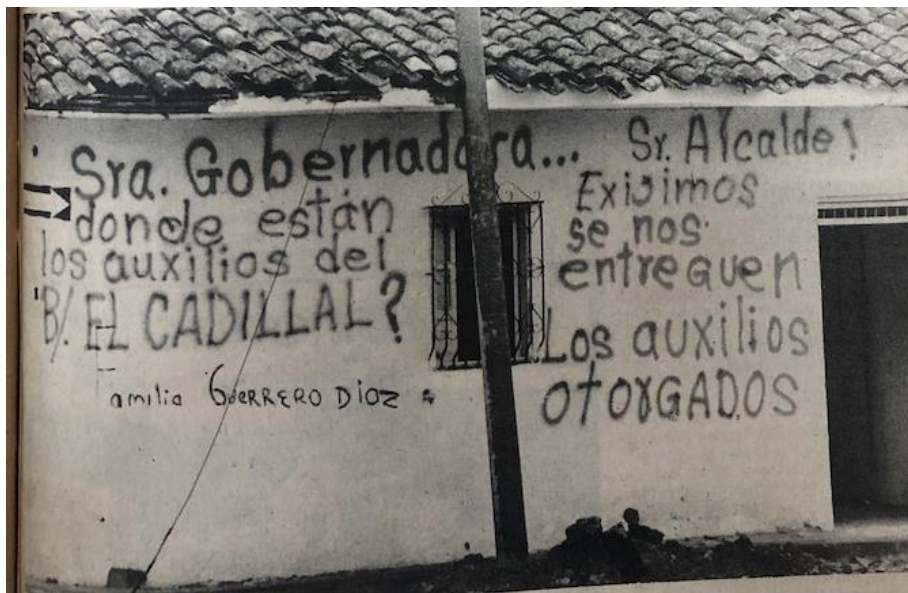 Sra. Gobernadora...
donde están
los auxilios del
B/. EL CADILLAL?
Familia GUERRERO DIOZ
Sr. Alcalde!
Exigimos
se nos
entreguen
Los auxilios
otorGADOS